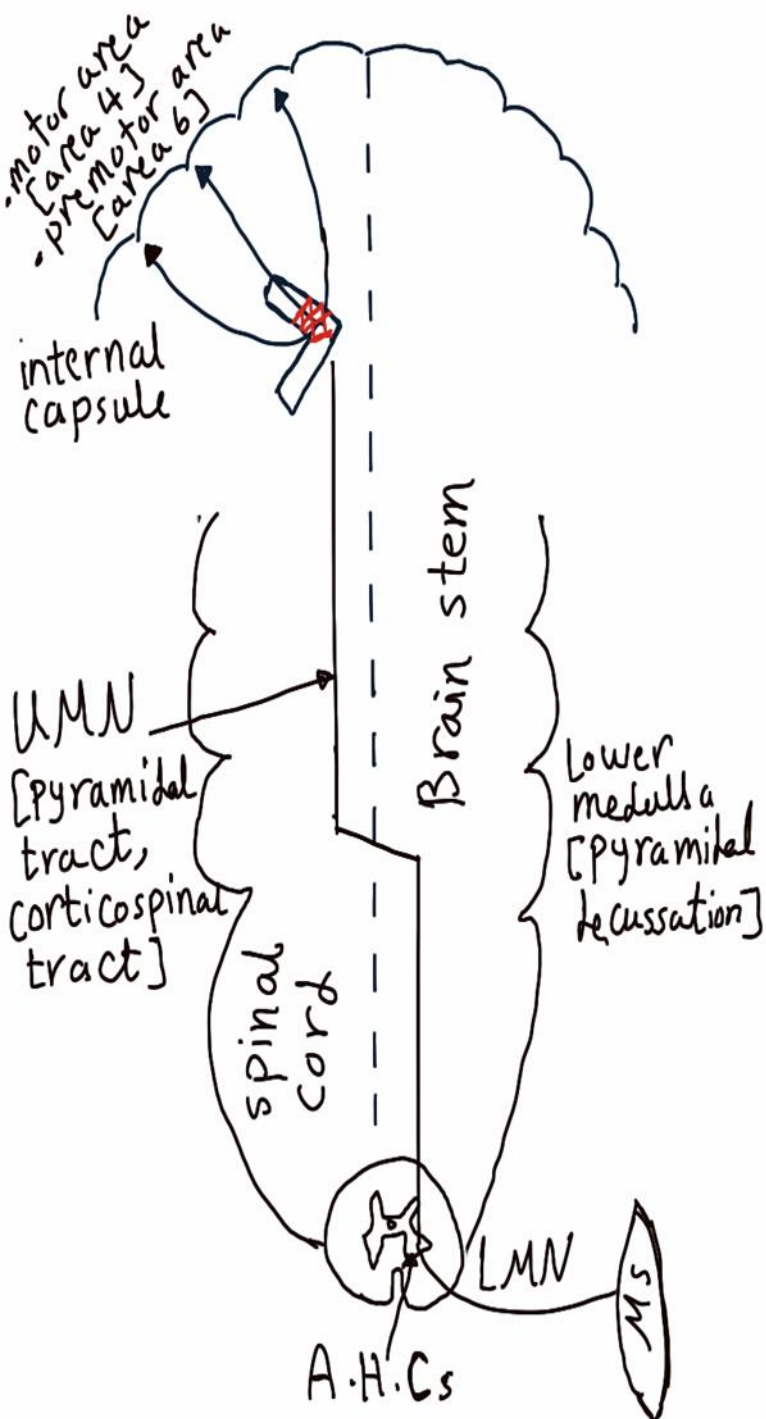 .motor area
[area 4]
.premotor area
[area 6]
internal
capsule
Brain stem
UMN
[pyramidal
tract,
corticospinal
tract]
Lower
medulla
[pyramidal
decussation]
spinal
cord
LMN
Ms
A.H.Cs